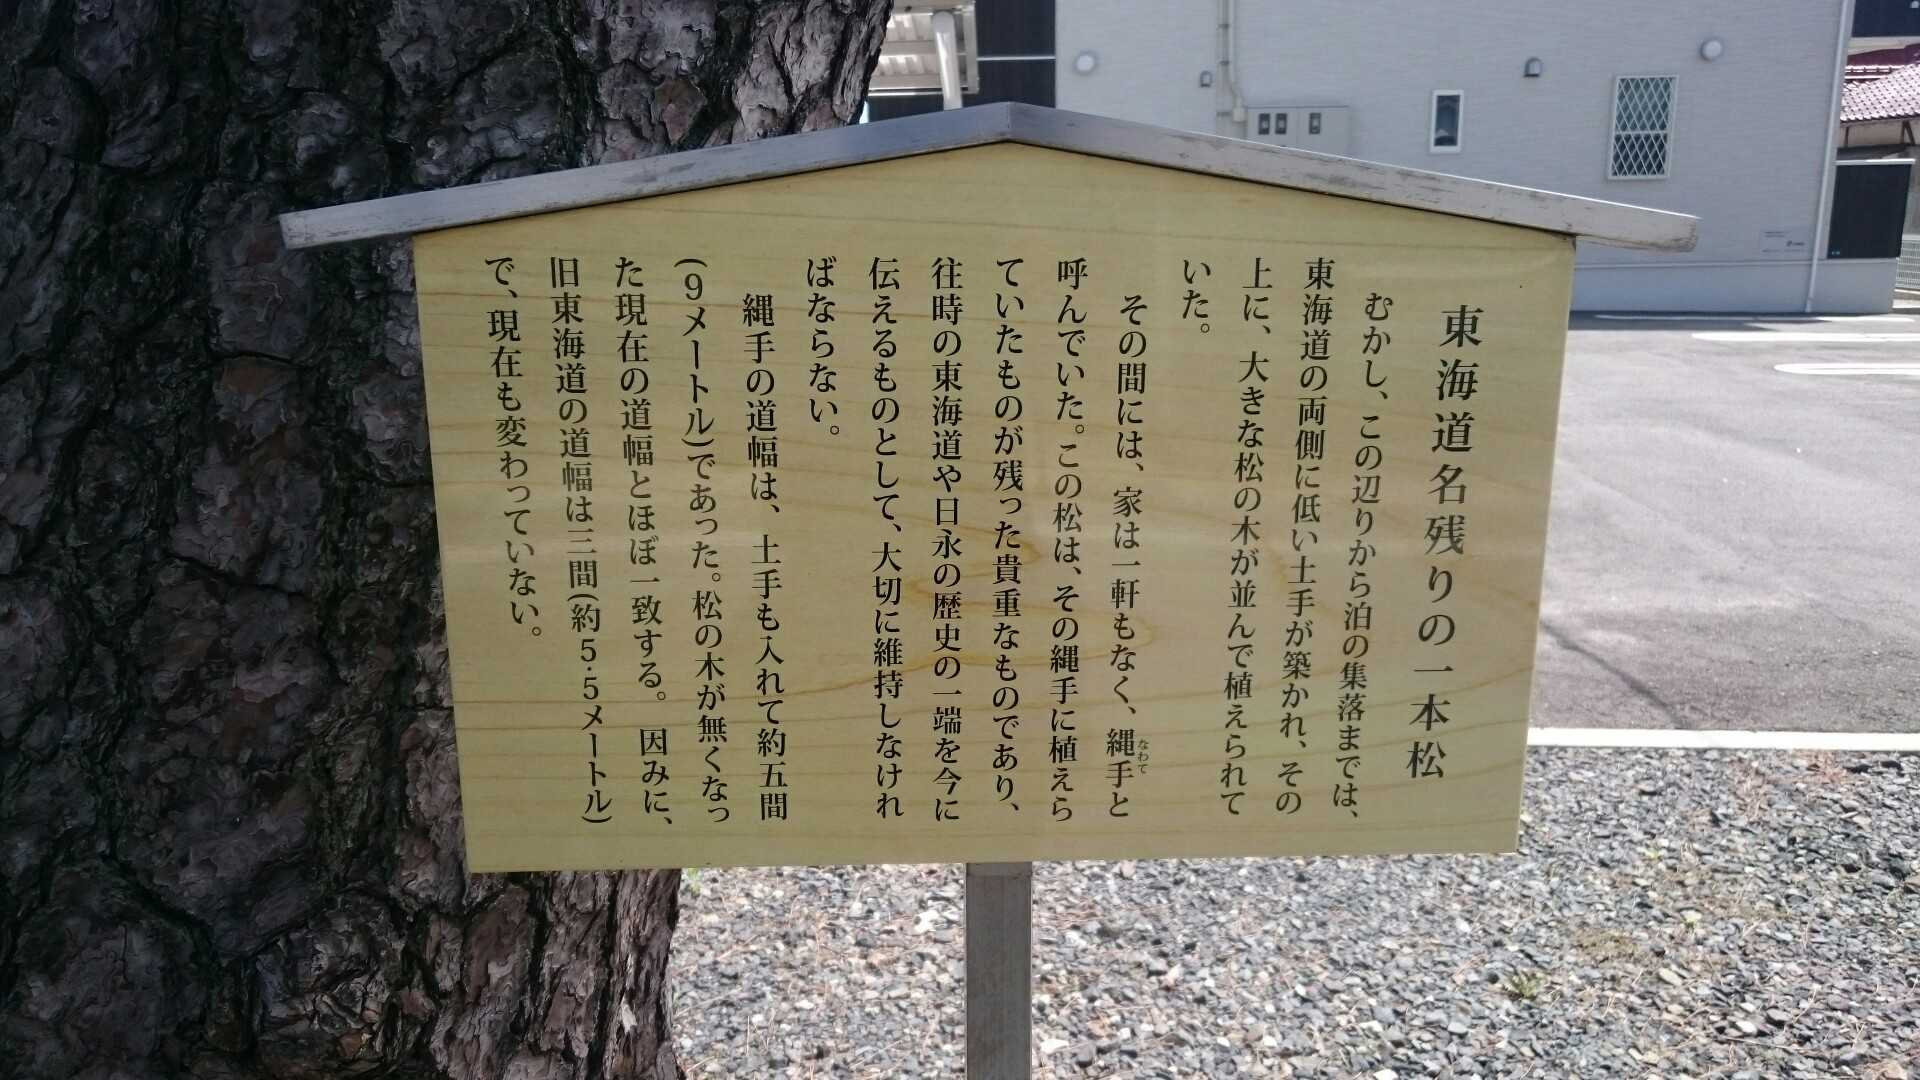 東海道名残りの一本松
むかし、この辺りから泊の集落までは、
東海道の両側に低い土手が築かれ、その
上に、大きな松の木が並んで植えられて
いた。
その間には、家は一軒もなく、縄手と
なわて
呼んでいた。この松は、その縄手に植えら
ていたものが残った貴重なものであり、
往時の東海道や日永の歴史の一端を今に
伝えるものとして、大切に維持しなけれ
ばならない。
縄手の道幅は、土手も入れて約五間
(9メートル)であった。松の木が無くなっ
た現在の道幅とほぼ一致する。因みに、
旧東海道の道幅は三間(約5.5メートル)
で、現在も変わっていない。